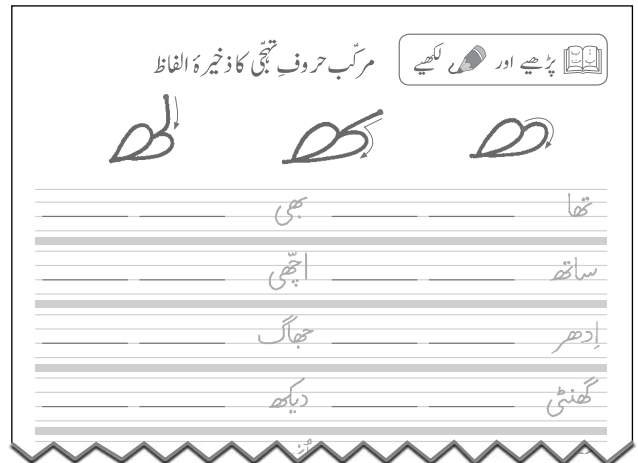 پڑھیے اور لکھیے
مرکّب حروفِ تہجّی کا ذخیرۂ الفاظ
تھا بھی
ساتھ اچّھی
اِدھر جھاگ
گھنٹی دیکھ